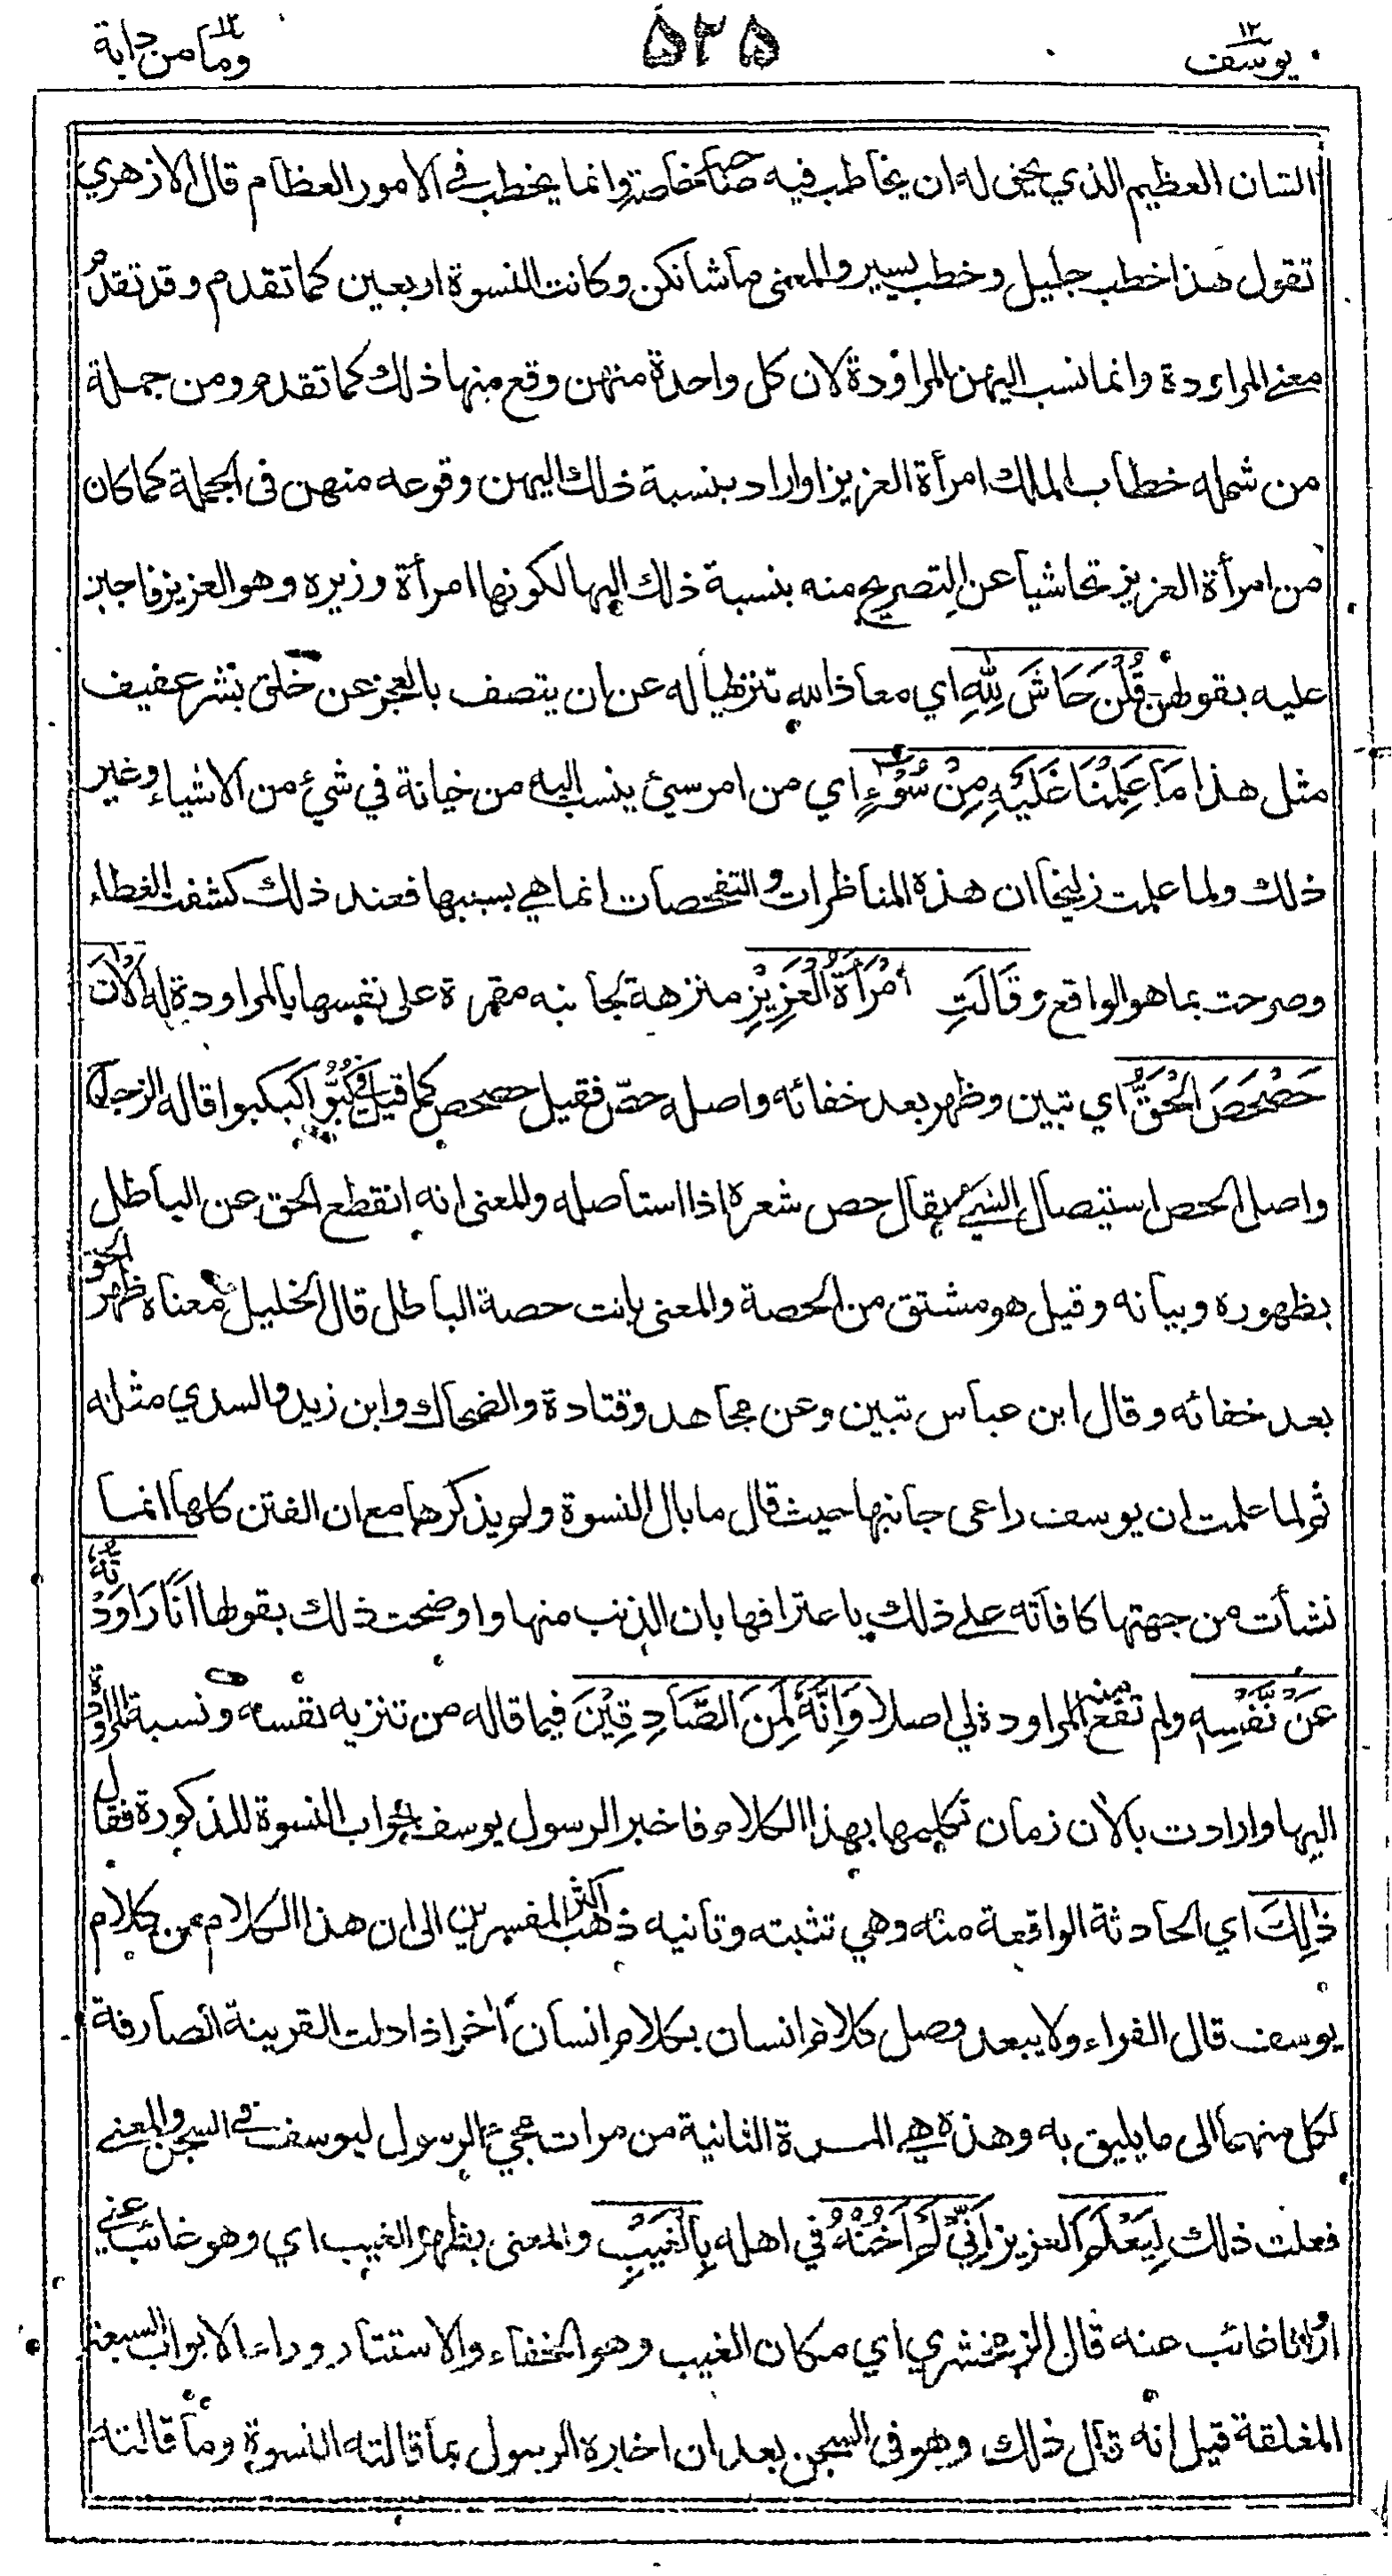 يوسف ١٢
٥٢٥
وما من دابة ١٢
الشان العظيم الذي يحق له ان يخاطب فيه صاحبه خاصة وانما يخطب في الامور العظام قال الازهري
تقول هذا خطب جليل وخطب يسير والمعنى ما شانكن وكانت النسوة اربعين كما تقدم وقد تقدم
معنى المراودة وانما نسب اليهن المراودة لان كل واحدة منهن وقع منها ذلك كما تقدم ومن جملة
من شمله خطاب الملك امرأة العزيز او اراد بنسبة ذلك اليهن وقوعه منهن فى الجملة كما كان
من امرأة العزيز تحاشيا عن التصريح منه بنسبة ذلك اليها لكونها امرأة وزيره وهو العزيز فاجبن
عليه بقولهن قُلْنَ حَاشَ لِلّٰهِ اي معاذ الله تنزيها له عن ان يتصف بالعجز عن خلق بشر عفيف
مثل هذا مَا عَلِمْنَا عَلَيْهِ مِنْ سُوْٓءٍ اي من امر سيئ ينسب اليه من خيانة في شيء من الاشياء وغير
ذلك ولما علمت زليخا ان هذه المناظرات والتفحصات انما هي بسببها فعند ذلك كشفت الغطاء
وصرحت بما هو الواقع و قَالَتِ امْرَأَةُ الْعَزِيْزِ منزهة لجانبه مقرة على نفسها بالمراودة له الْاٰنَ
حَصْحَصَ الْحَقُّ اي تبين وظهر بعد خفائه واصله حصّ فقيل حصحص كما قيل في كُبُّوا كبكبوا قاله الزجاج
واصل الحص استيصال الشيء يقال حص شعره اذا استاصله والمعنى انه انقطع الحق عن الباطل
بظهوره وبيانه وقيل هو مشتق من الحصة والمعنى بانت حصة الباطل قال الخليل معناه ظهر الحق
بعد خفائه وقال ابن عباس تبين وعن مجاهد وقتادة والضحاك وابن زيد والسدي مثله
ثم لما علمت ان يوسف راعى جانبها حيث قال ما بال النسوة ولم يذكرها مع ان الفتن كلها انما
نشأت من جهتها كافأته على ذلك باعترافها بان الذنب منها واوضحت ذلك بقولها اَنَا رَاوَدْتُّهٗ
عَنْ نَّفْسِهٖ ولم تقع منه المراودة لي اصلا وَاِنَّهٗ لَمِنَ الصَّادِقِيْنَ فيما قاله من تنزيه نفسه ونسبة المراودة
اليها وارادت بالآن زمان تكلمها بهذا الكلام فاخبر الرسول يوسف بجواب النسوة المذكورة فقال
ذٰلِكَ اي الحادثة الواقعة منه وهي تثبته وتانيه ذهب اكثر المفسرين الى ان هذا الكلام من كلام
يوسف قال الفراء ولا يبعد وصل كلام انسان بكلام انسان اٰخر اذا دلت القرينة الصارفة
لكل منهما الى ما يليق به وهذه هي المرة الثانية من مرات مجيء الرسول ليوسف في السجن والمعنى
فعلت ذلك لِيَعْلَمَ العزيز اَنِّيْ لَمْ اَخُنْهُ في اهله بِالْغَيْبِ والمعنى بظهر الغيب اي وهو غائب عني
او وانا غائب عنه قال الزمخشري اي مكان الغيب وهو الخفاء والاستتار وراء الابواب السبعة
المغلقة قيل انه قال ذلك وهو في السجن بعد ان اخبره الرسول بما قالته النسوة وما قالته